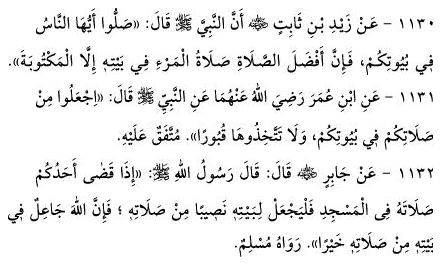 ١١٣٠ - عَنْ زَيْدِ بْنِ ثَابِتٍ ﷺ أَنَّ النَّبِيَّ ﷺ قَالَ: «صَلُّوا أَيُّهَا النَّاسُ
فِي بُيُوتِكُمْ، فَإِنَّ أَفْضَلَ الصَّلَاةِ صَلَاةُ الْمَرْءِ فِي بَيْتِهِ إِلَّا الْمَكْتُوبَةَ».
١١٣١ - عَنِ ابْنِ عُمَرَ رَضِيَ اللهُ عَنْهُمَا عَنِ النَّبِيِّ ﷺ قَالَ: «اِجْعَلُوا مِنْ
صَلَاتِكُمْ فِي بُيُوتِكُمْ، وَلَا تَتَّخِذُوهَا قُبُورًا». مُتَّفَقٌ عَلَيْهِ.
١١٣٢ - عَنْ جَابِرٍ ﷺ قَالَ: قَالَ رَسُولُ اللهِ ﷺ: «إِذَا قَضٰى أَحَدُكُمْ
صَلَاتَهُ فِى الْمَسْجِدِ فَلْيَجْعَلْ لِبَيْتِهِ نَصِيبًا مِنْ صَلَاتِهِ ؛ فَإِنَّ اللهَ جَاعِلٌ فِي
بَيْتِهِ مِنْ صَلَاتِهِ خَيْرًا». رَوَاهُ مُسْلِمٌ.